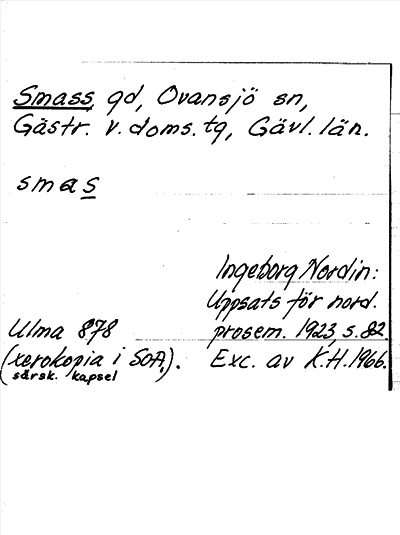 Smass, gd, Ovansjö sn,
Gästr. v. doms. tg, Gävl. län.
smas
Ingeborg Nordin:
Uppsats för nord.
Ulma 878 prosem. 1923, s. 82.
(xerokopia i SOA, särsk. kapsel). Exc. av K.H. 1966.